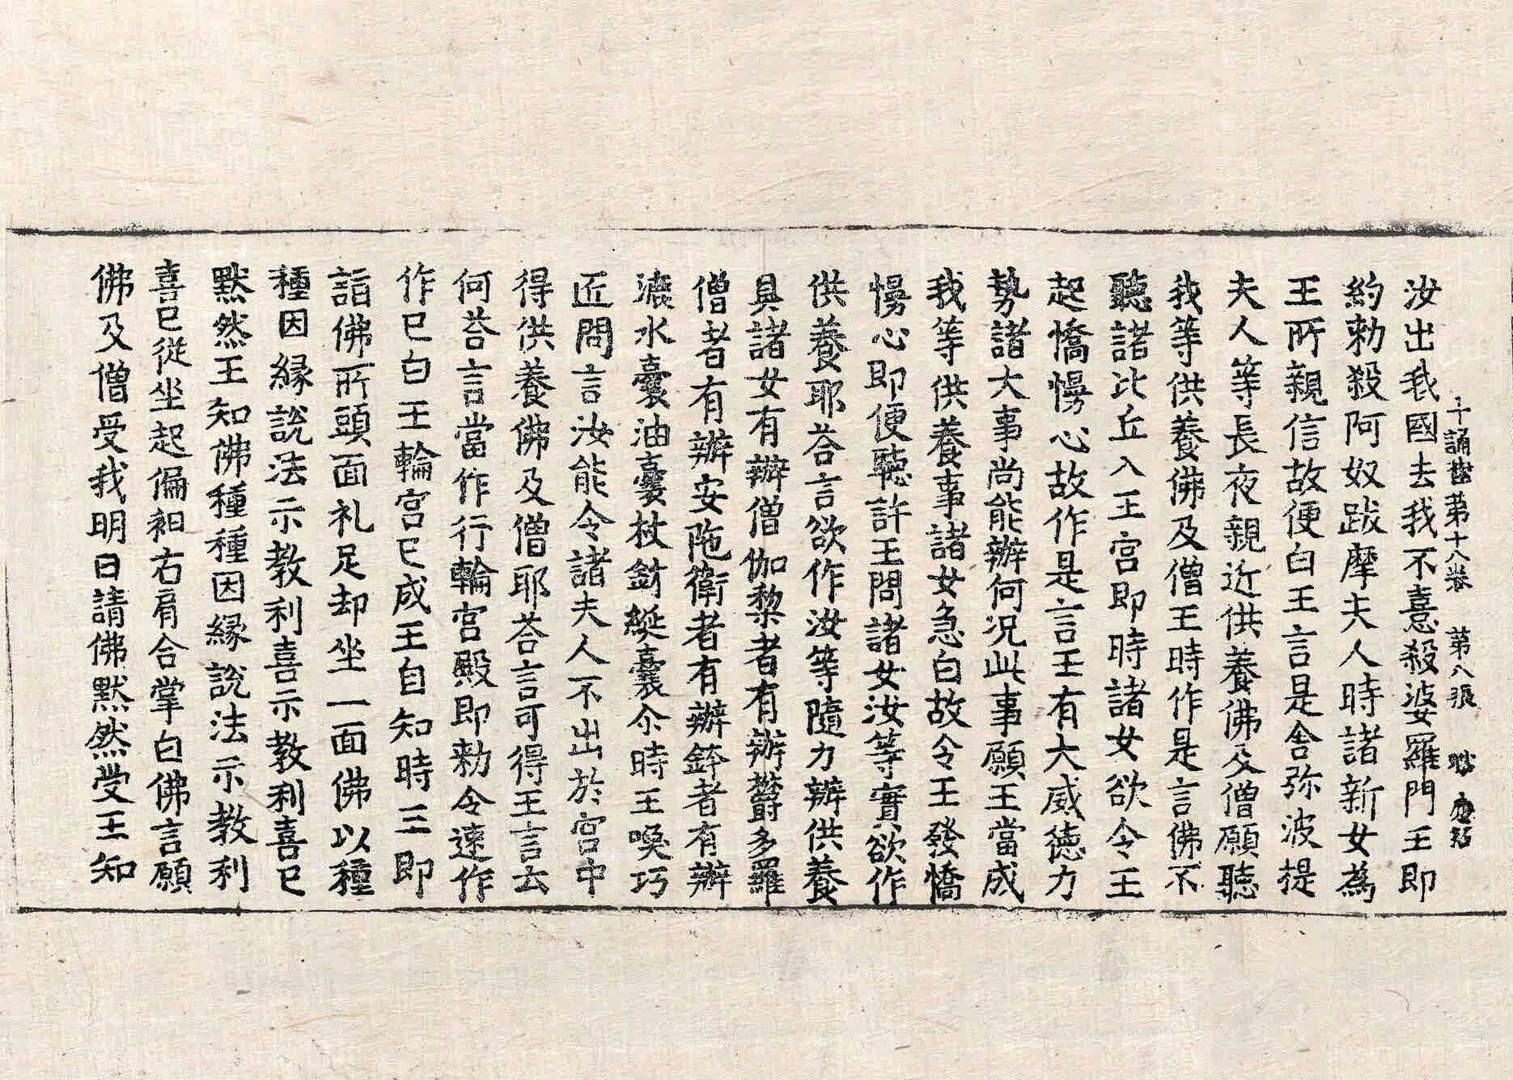 汝出我國去我不憙殺婆羅門王即
十誦律第十八卷 第八張
約勑殺阿奴跋摩夫人時諸新女為
王所親信故便白王言是舍弥波提
夫人等長夜親近供養佛及僧願聽
我等供養佛及僧王時作是言佛不
聽諸比丘入王宮即時諸女欲令王
起憍慢心故作是言王有大威徳力
勢諸大事尚能辦何况此事願王當成
我等供養事諸女急白故令王發憍
慢心即便聽許王問諸女汝等實欲作
供養耶荅言欲作汝等隨力辦供養
具諸女有辦僧伽棃者有辦欝多羅
僧者有辦安陁衛者有辦鉢者有辦
漉水囊油囊杖鉹綖囊尒時王喚巧
匠問言汝能令諸夫人不出於宮中
得供養佛及僧耶荅言可得王言云
何荅言當作行輪宮殿即勑令速作
作已白王輪宮已成王自知時王即
詣佛所頭面礼足却坐一面佛以種
種因緣說法示教利喜示教利喜已
黙然王知佛種種因緣說法示教利
喜已從坐起偏袒右肩合掌白佛言願
佛及僧受我明日請佛黙然受王知